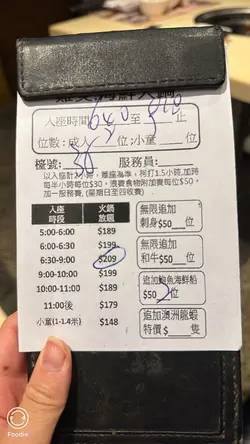 入座時間 640 至 810 止
位數:成人 2 位;小童 位
檯號: 38 服務員:
每半小時每位$30。浪費食物附加費每位$50。
加一服務費。(星期日至四收費)
入座時段 火鍋放題
5:00-6:00 $189
6:00-6:30 $199
6:30-9:00 $209
9:00-10:00 $199
10:00-11:00 $189
11:00後 $179
小童(1-1.4米) $148
無限追加
刺身$50 位
無限追加
和牛$50 位
追加鮑魚海鮮船
$50 2 位
追加澳洲龍蝦
特價 $ 隻
Foodie